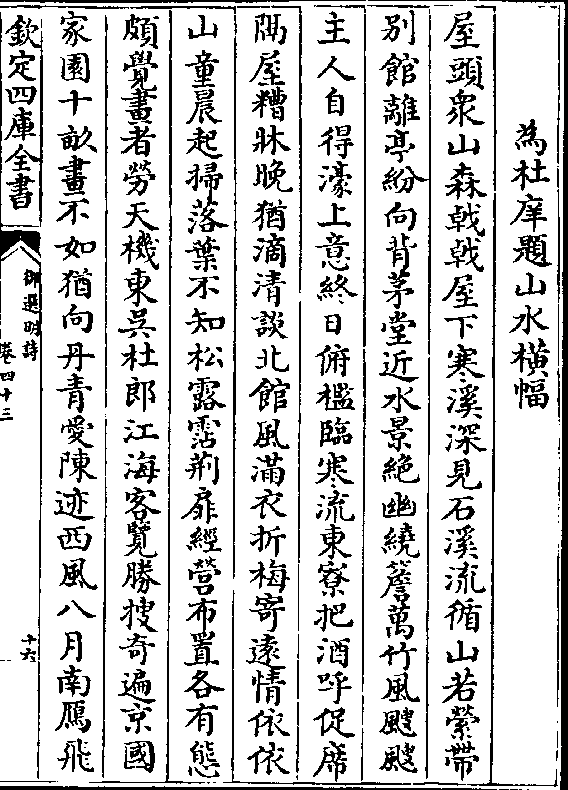 為杜庠題山水橫幅
屋頭衆山森戟戟屋下寒溪深見石溪流循山若縈帶
別館離亭紛向背茅堂近水景絶幽繞簷萬竹風颼颼
主人自得濠上意終日俯檻臨寒流東寮把酒呼促席
隅屋糟牀晚猶滴清談北館風滿衣折梅寄遠情依依
山童晨起掃落葉不知松露霑荆扉經營布置各有態
頗覺畫者勞天機東吳杜郎江海客覽勝搜奇遍京國
家園十畝畫不如猶向丹青愛陳迹西風八月南鴈飛
欽定四庫全書
御選明詩
卷四十三
十六